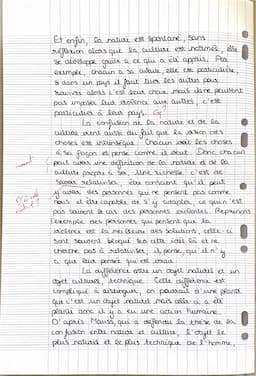 Et enfin, la nature est spontané, sans
réflexion alors que la culture est notamés, elle
se développe grâce à ce qui a été appris. Par
exemple, chacun a sa culture, elle est particulière,
si dans un pays il faut tuer les autres pour
survivre alors c'est leur choix, mais ils ne peuvent
pas imposer leur violence aux autres, c'est
particulier à leur pays.
La confusion de la nature et de la
culture vient aussi du fait que la vision des
choses est intrinsèque. Chacun voit les choses
à sa façon et pense comme il veut. Donc chacun
peut avoir une définition de la nature et de la
culture propre à soi. Une richesse, c'est de
savoir relativiser, être conscient qu'il peut
y avoir des personnes qui ne pensent pas comme
nous et être capable de s'y adapter, ce qui n'est
pas souvent le cas des personnes violentes. Reprenons
l'exemple des personnes qui pensent que la
violence est la meilleure des solutions, celle-ci
sont souvent bloqué sur cette idée là et ne
cherche pas à relativiser, il pense, qu'il n'y
a que leur pensée qui est vraie.
La différence entre un objet naturel et un
objet culturel, technique. Cette différence est
compliqué à distinguer, on pourrait d'une plante
que c'est un objet naturel mais celle-ci a été
planté donc il y a eu une action humaine.
D'après Mauss, qui a défendu la thèse de la
confusion entre nature et culture, l'objet le
plus naturel et le plus technique de l'homme,